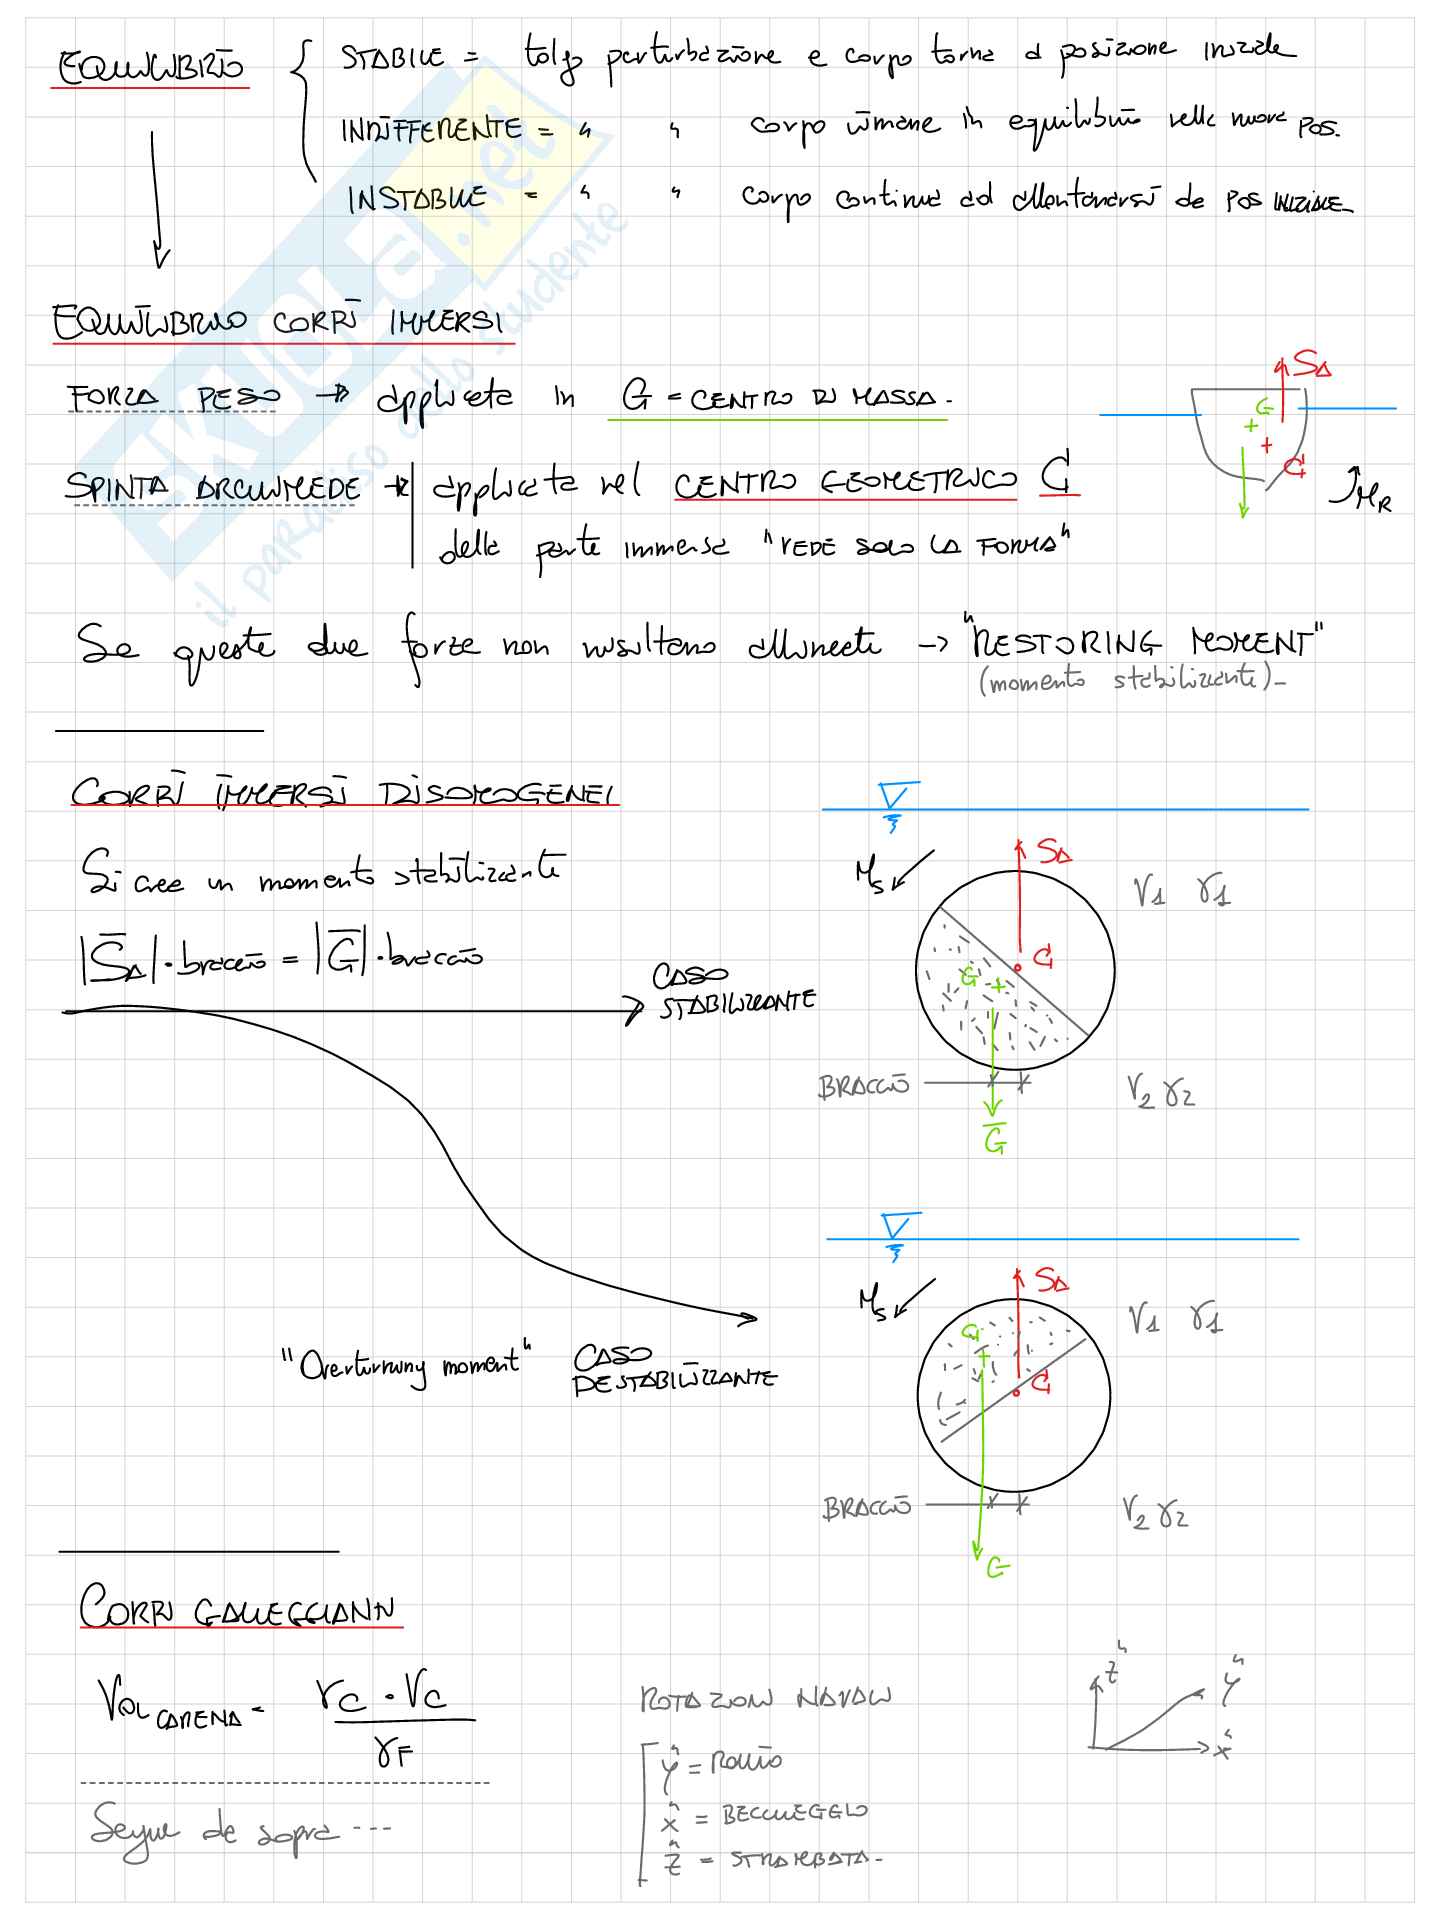 EQUILIBRIO
STABILE = tolgo perturbazione e corpo torna a posizione iniziale
INDIFFERENTE = " " corpo rimane in equilibrio nella nuova pos.
INSTABILE = " " corpo continua ad allontanarsi da pos INIZIALE
EQUILIBRIO CORPI IMMERSI
FORZA PESO → applicata in G = CENTRO DI MASSA.
SPINTA ARCHIMEDE → applicata nel CENTRO GEOMETRICO C
della parte immersa "VEDE SOLO LA FORMA"
SA
G
C
MR
Se queste due forze non risultano allineate → "RESTORING MOMENT"
(momento stabilizzante)
CORPI IMMERSI DISOMOGENEI
Si crea un momento stabilizzante
|SA| · braccio = |G| · braccio
CASO
STABILIZZANTE
MS
SA
V1 γ1
C
G
BRACCIO
V2 γ2
G
"Overturning moment" CASO
DESTABILIZZANTE
MS
SA
V1 γ1
G
C
BRACCIO
V2 γ2
G
CORPI GALLEGGIANTI
VOL CARENA = γC · VC / γF
Segue da sopra ---
ROTAZIONI NAVALI
ŷ = ROLLIO
x̂ = BECCHEGGIO
ẑ = STRAMBATA
ẑ
ŷ
x̂
SKUOLA.net
il paradiso dello studente